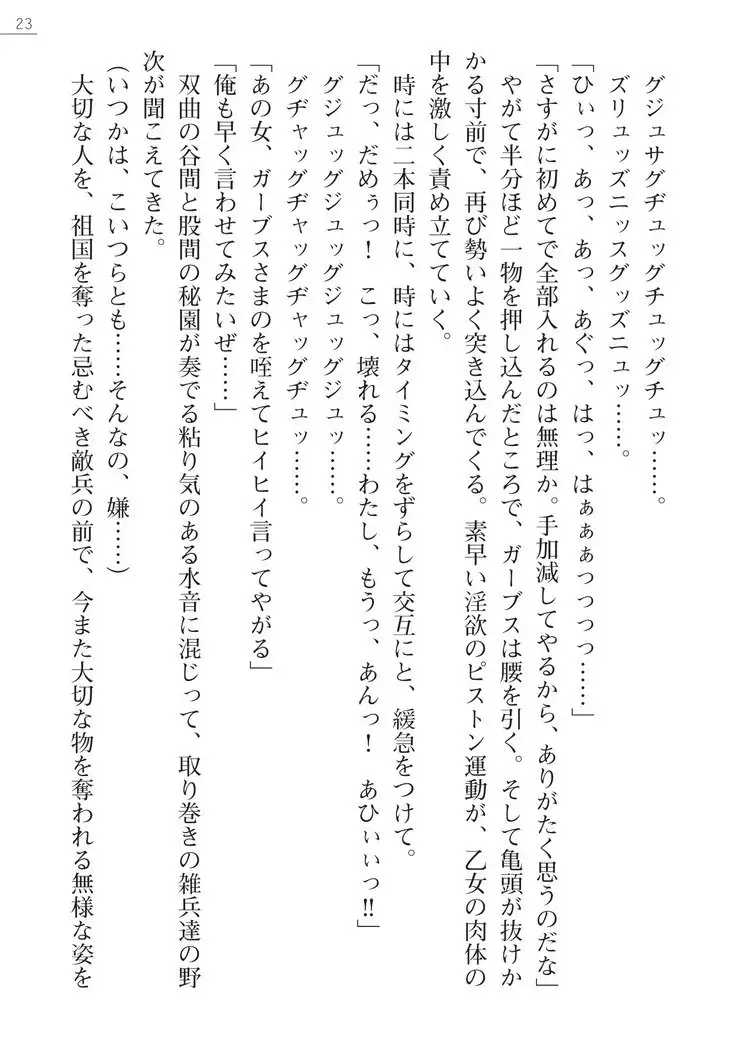 23
グジュサグヂュッグチュッグチュッ……。
ズリュッズニッスグッズニュッ……。
「ひぃっ、あっ、あっ、あぐっ、はっ、はぁぁぁっつつつっ……」
「さすがに初めてで全部入れるのは無理か。手加減してやるから、ありがたく思うのだな」
やがて半分ほど一物を押し込んだところで、ガーブスは腰を引く。そして亀頭が抜けか
かる寸前で、再び勢いよく突き込んでくる。素早い淫欲のピストン運動が、乙女の肉体の
中を激しく責め立てていく。
時には二本同時に、時にはタイミングをずらして交互にと、緩急をつけて。
「だっ、だめぅっ！　こっ、壊れる……わたし、もうっ、あんっ！　あひぃぃっ‼」
グジュッグジュッグジュッグジュッ……。
グヂャッグヂャッグヂャッグヂュッ……。
「あの女、ガーブスさまのを咥えてヒイヒイ言ってやがる」
「俺も早く言わせてみたいぜ……」
双曲の谷間と股間の秘園が奏でる粘り気のある水音に混じって、取り巻きの雑兵達の野
次が聞こえてきた。
（いつかは、こいつらとも……そんなの、嫌……）
大切な人を、祖国を奪った忌むべき敵兵の前で、今また大切な物を奪われる無様な姿を